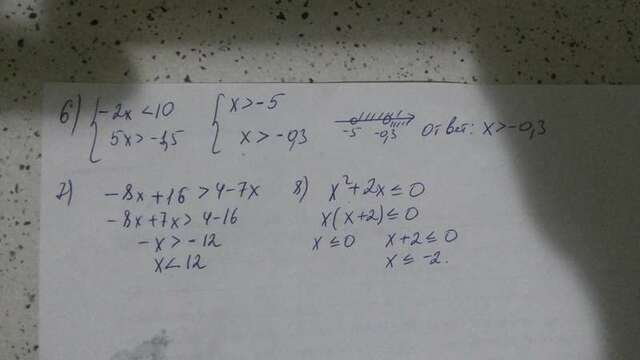 6) { -2x < 10 { x > -5
5x > -1,5 x > -0,3 -5 -0,3 Ответ: x > -0,3
7) -8x + 16 > 4 - 7x
-8x + 7x > 4 - 16
-x > -12
x < 12
8) x² + 2x ≤ 0
x(x + 2) ≤ 0
x ≤ 0 x + 2 ≤ 0
x ≤ -2